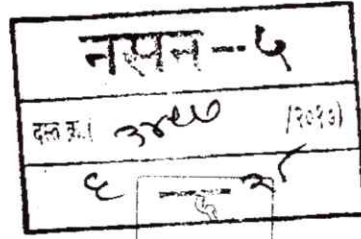 नसन--५
दस्त क्र.( ३४९७ /२०१७)
६ — २८